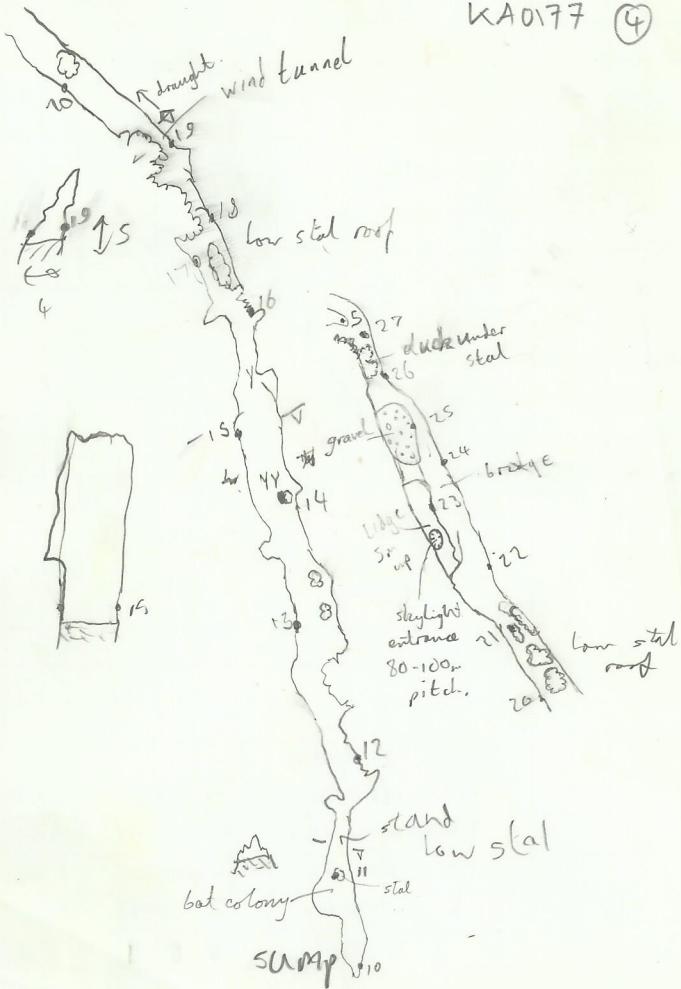 KA0177 4
draught
wind tunnel
20
19
19
5
4
18
low stal roof
17
16
5
27
duck under
stal
26
25
gravel
24
bridge
15
23
YY
14
ledge
5m
up
22
15
13
skylight
entrance
80-100m
pitch.
21
low stal
roof
20
12
stand
low stal
11
stal
bat colony
sump
10